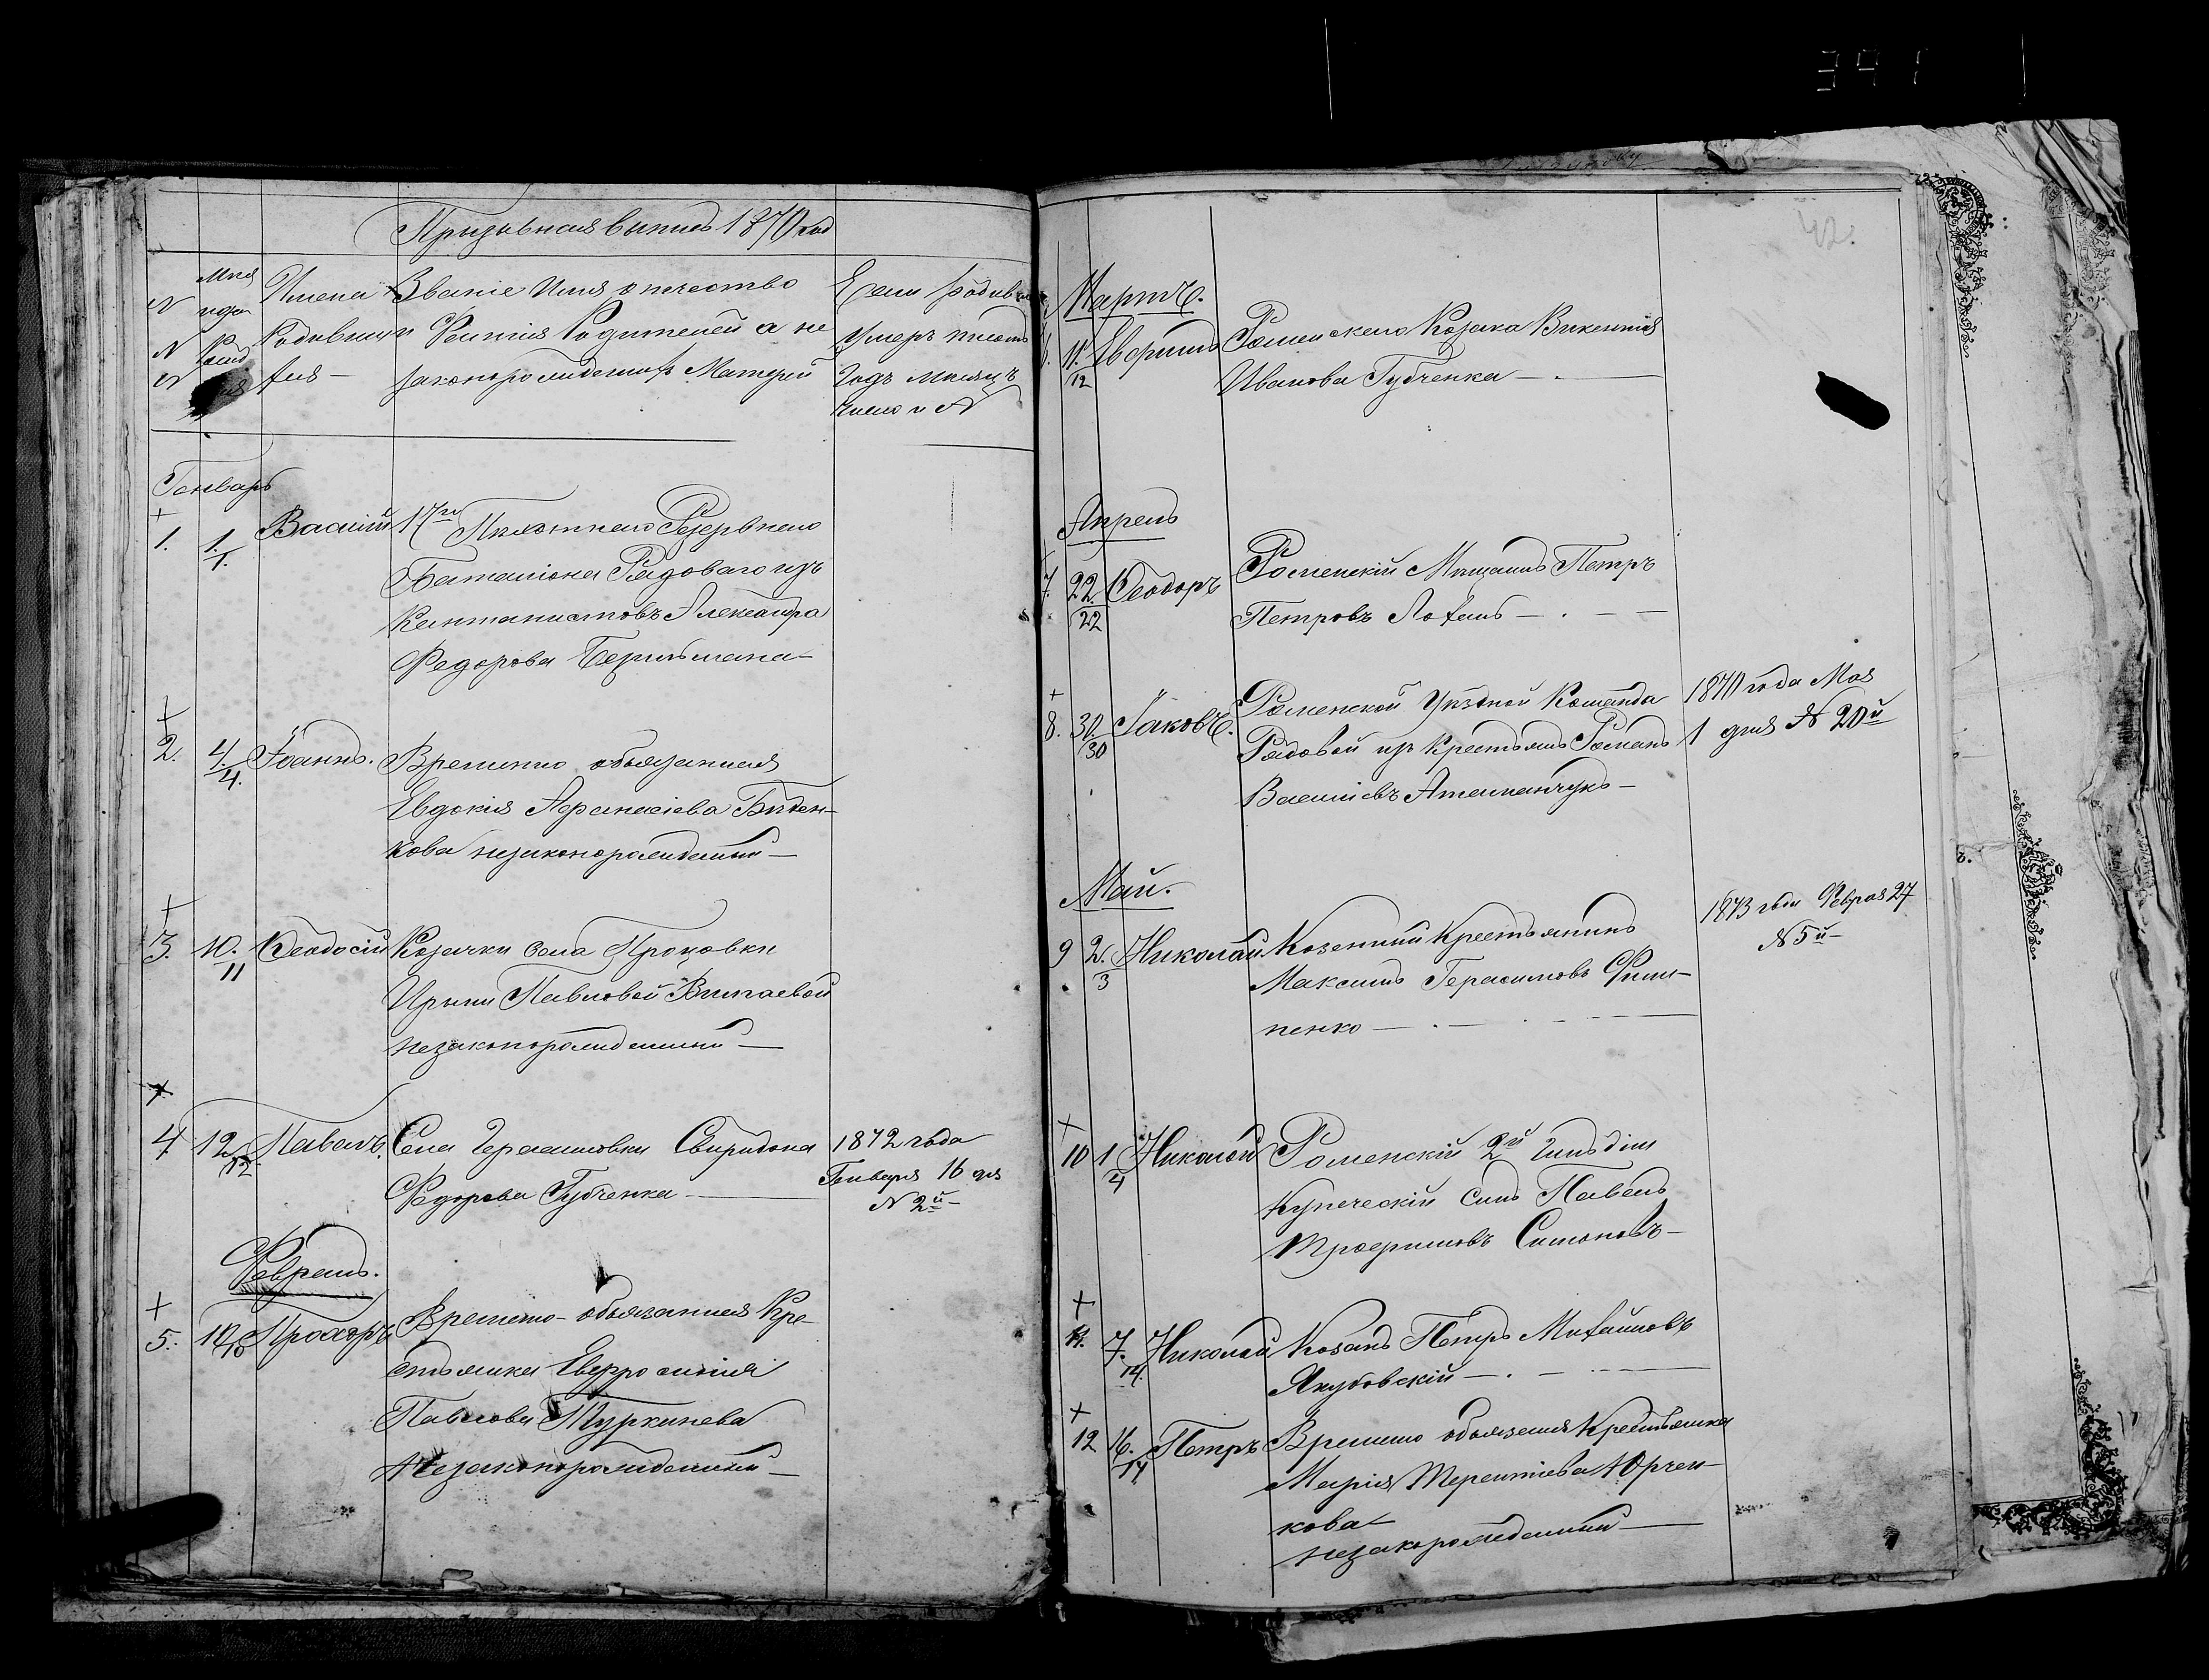 Призивная выпись 1870 год
N N N
Мця
Имена Родивши
Званіе Имя отчество
и Фамилія Родителей а не
законорожденыхъ Матерей
Если родивш
Умеръ писать
Годъ Мѣсяцъ
Число и N
Генварь
1. 1./1. Василій 17го Пѣхотнаго Резервнаго
Баталіона Рядоваго изъ
Кантанистовъ Александра
Федорова
2. 4./4. Іоаннъ. Временно обязанная
Евдокія Афанасіева Биден-
кова незаконорожденый —
3. 10./11 Феодосій Козачки села Процовки
Ирыни Павловой
Незаконорожденный —
4 12/12. Павелъ. Села Герасимовки Свиридона
Федорова Губченка —
1872 года
Генваря 16 дня
N 2й
Февраль.
5. 10/10 Прохоръ Временно-обязанная Кре-
стьянка Евфросинія
Павлова Туркинева
Незаконорожденный —
42.
Мартъ.
6. 11./12 Евфимъ Роменскаго Козака Викентія
Иванова Губченка — . —
Апрель
7. 22./22 Феодоръ Роменскій Мещанинъ Петръ
Петровъ — . —
8. 30./30 Іаковъ. Роменской Уѣздной Команды
Рядовой изъ Крестьянъ Романъ
Василіевъ Атаманчукъ —
1870 года Мая
1 дня N 20й
Май.
9 2./3 Николай Козенный Крестьянинъ
Максимъ Герасимовъ Фили-
пенко — . —
1873 года Февраля 27
N 5й —
10 1/4 Николай Роменскій 2й Гильдіи
Купеческій Сынъ Павелъ
Трофимовъ Симоновъ —
11. 7./14. Николай Козакъ Петръ Михайловъ
Якубовскій — . —
12 16./17 Петръ Временно обязаная Крестьянка
Марія Терентіева Юрчен-
кова
незакорожденный —